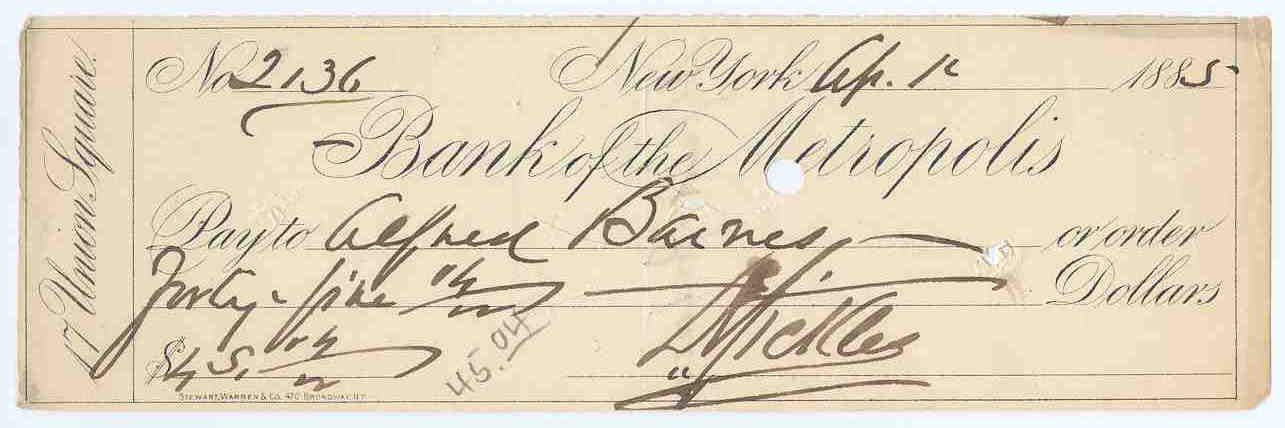 17 Union Square.
No 2136 New York Ap. 1 1885
Bank of the Metropolis
Pay to Alfred Barnes or order
Forty-five 04/ Dollars
$45. 04/
45.04
D Sickles
STEWART, WARREN & CO. 470 BROADWAY, N.Y.